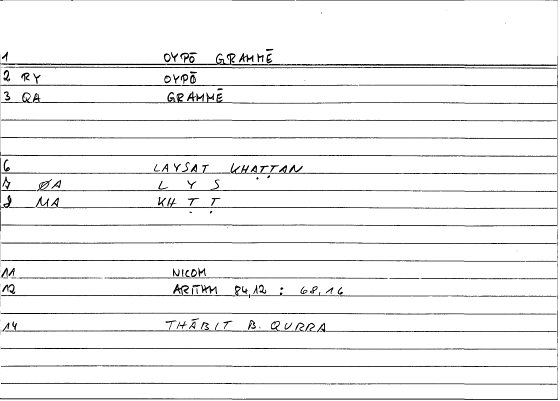 1 OYPŌ GRAMMĒ
2 RY OYPŌ
3 QA GRAMMĒ
6 LAYSAT KHAṬṬAN
7 ØA L Y S
8 MA KH Ṭ Ṭ
11 NICOM
12 ARITHM 84,12 : 68,16
14 THĀBIT B. QURRA